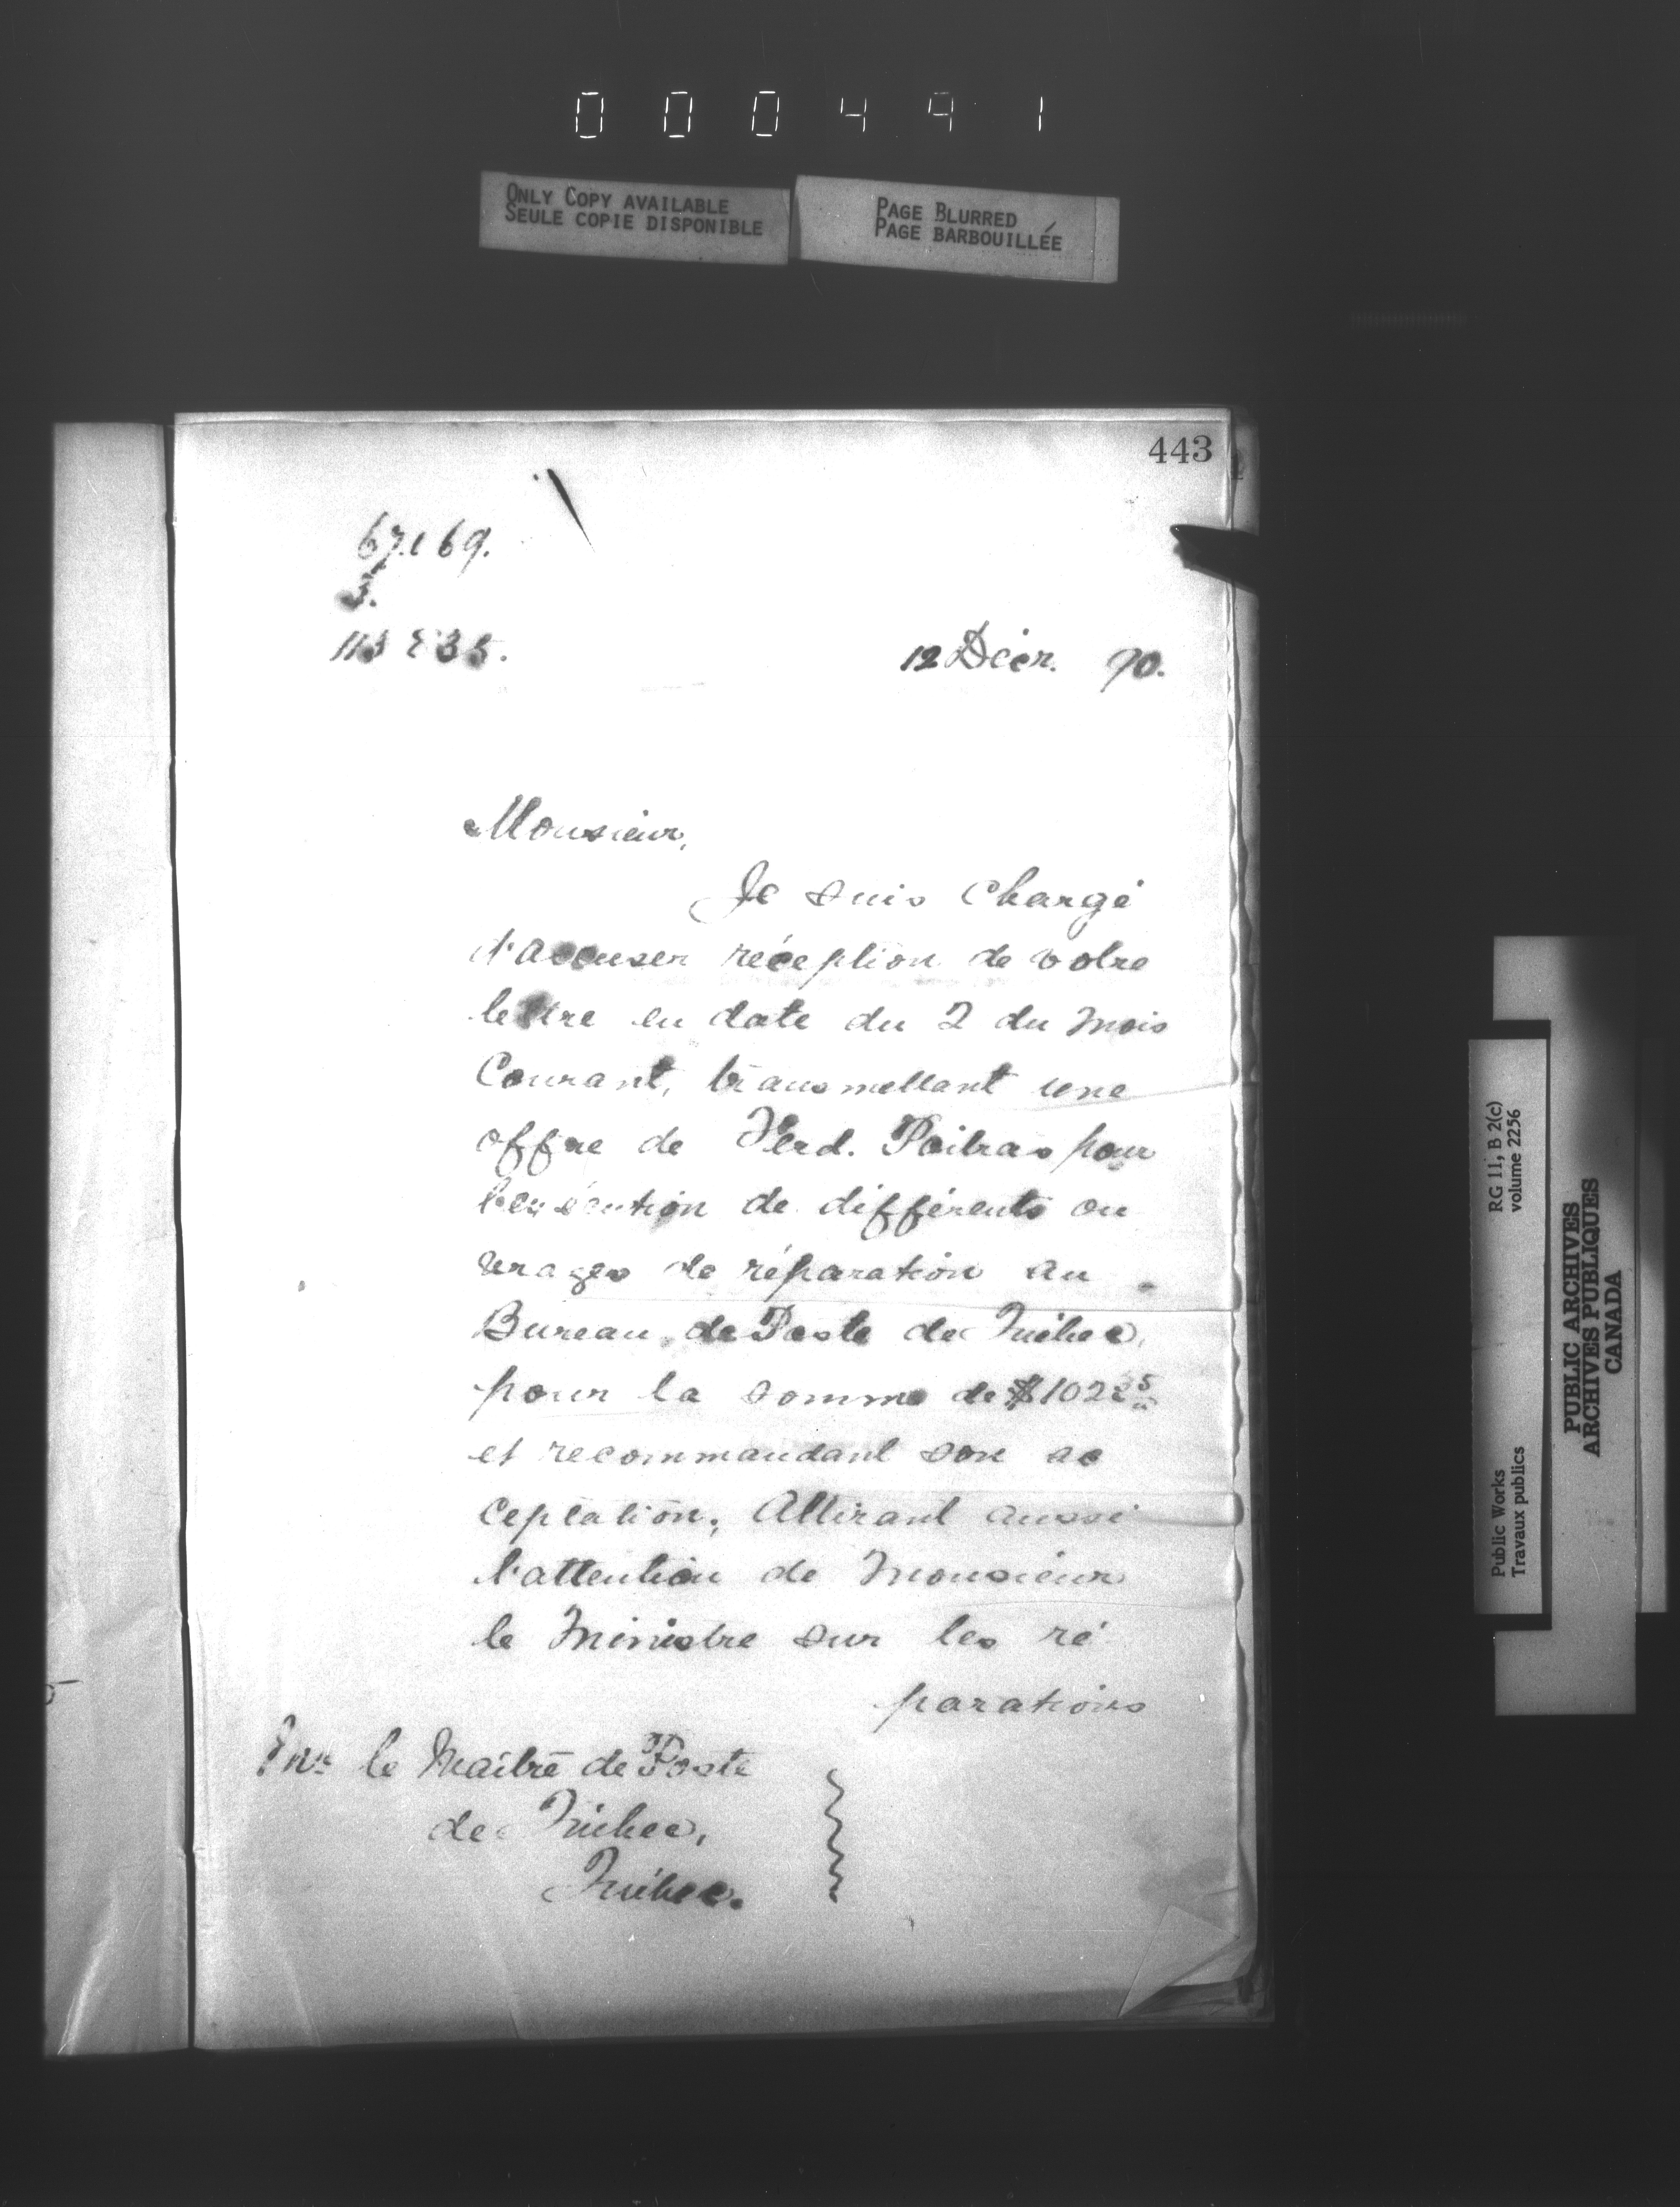 000491
ONLY COPY AVAILABLE
SEULE COPIE DISPONIBLE
PAGE BLURRED
PAGE BARBOUILLÉE
443
3.
12 Décr. 90.
Monsieur,
Je suis chargé
d'accuser réception de votre
lettre en date du 2 du mois
Courant, transmettant une
offre de Ferd. Poitras pour
l'exécution de différents ou
vrages de réparation au
Bureau de Poste de Québec,
pour la somme de
et recommandant son ac
ceptation; Attirant aussi
l'attention de Monsieur
le Ministre sur les ré
parations
le Maître de Poste
de Québec,
Québec.
RG 11, B 2(c)
volume 2256
Public Works
Travaux publics
PUBLIC ARCHIVES
ARCHIVES PUBLIQUES
CANADA